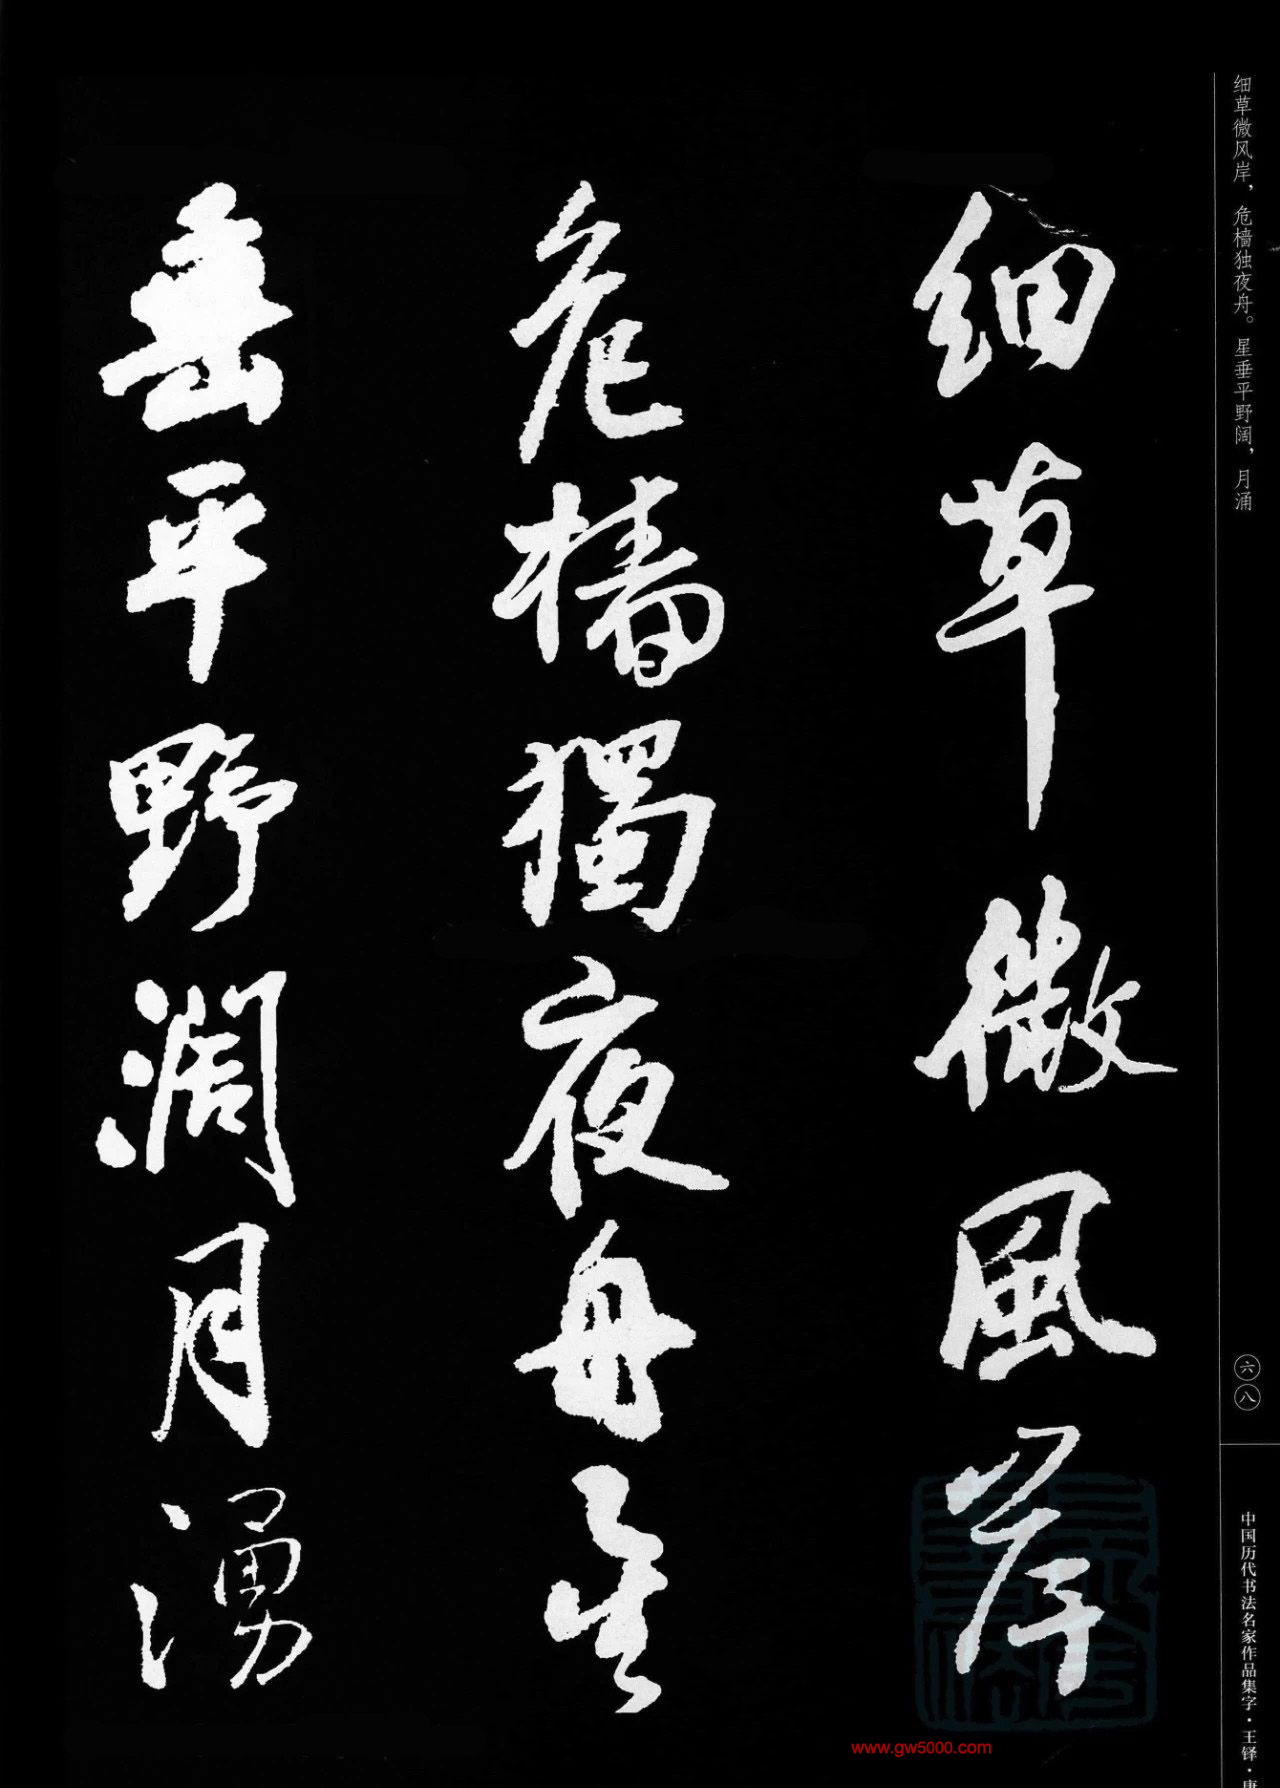 细草微风岸，危樯独夜舟。星垂平野阔，月涌
細草微風岸
危檣獨夜舟星
垂平野闊月湧
六八
中国历代书法名家作品集字·王铎·唐
www.gw5000.com